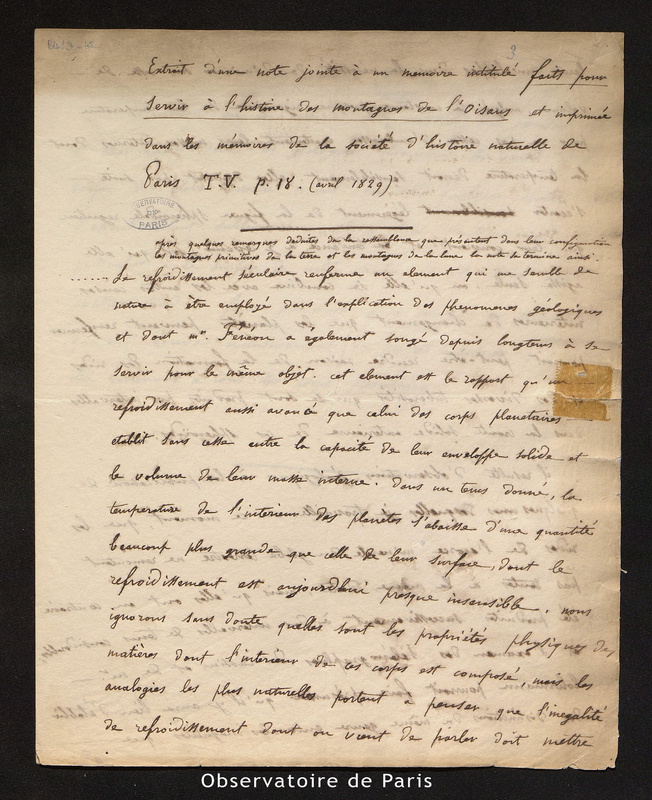 3
Extrait d'une note jointe à un memoire intitulé faits pour
servir à l'histoire des montagnes de l'Oisans et imprimée
dans les mémoires de la société d'histoire naturelle de
Paris T.V. p. 18. (avril 1829)
OBSERVATOIRE
DE
PARIS
après quelques remarques déduites de la ressemblance que présentent dans leur configuration
les montagnes primitives de la terre et les montagnes de la lune la note se termine ainsi.
...... Le refroidissement séculaire renferme un element qui me semble de
nature à être employé dans l'explication des phenomenes géologiques
et dont mr. Feneon a également songé depuis longtems à se
servir pour le même objet. cet element est le rapport qu'un
refroidissement aussi avancé que celui des corps planetaires
etablit sans cesse entre la capacité de leur enveloppe solide et
le volume de leur masse interne. dans un tems donné, la
temperature de l'interieur des planetes s'abaisse d'une quantité
beaucoup plus grande que celle de leur surface, dont le
refroidissement est aujourdhui presque insensible. nous
ignorons sans doute quelles sont les propriétés physiques des
matières dont l'interieur de ces corps est composé, mais les
analogies les plus naturelles portent à penser que l'inegalité
de refroidissement dont on vient de parler doit mettre
Observatoire de Paris